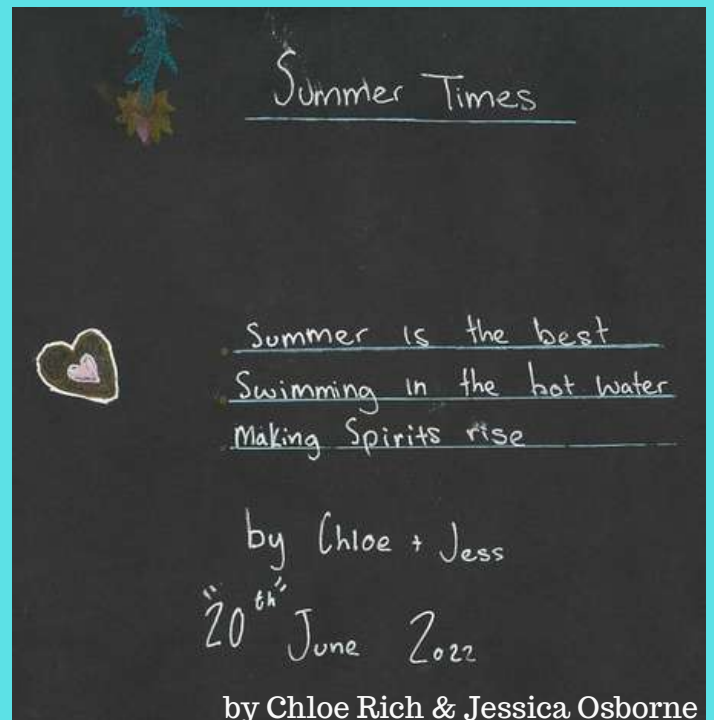 Summer Times
Summer is the best
Swimming in the hot water
Making Spirits rise
by Chloe + Jess
"20th" June 2022
by Chloe Rich & Jessica Osborne